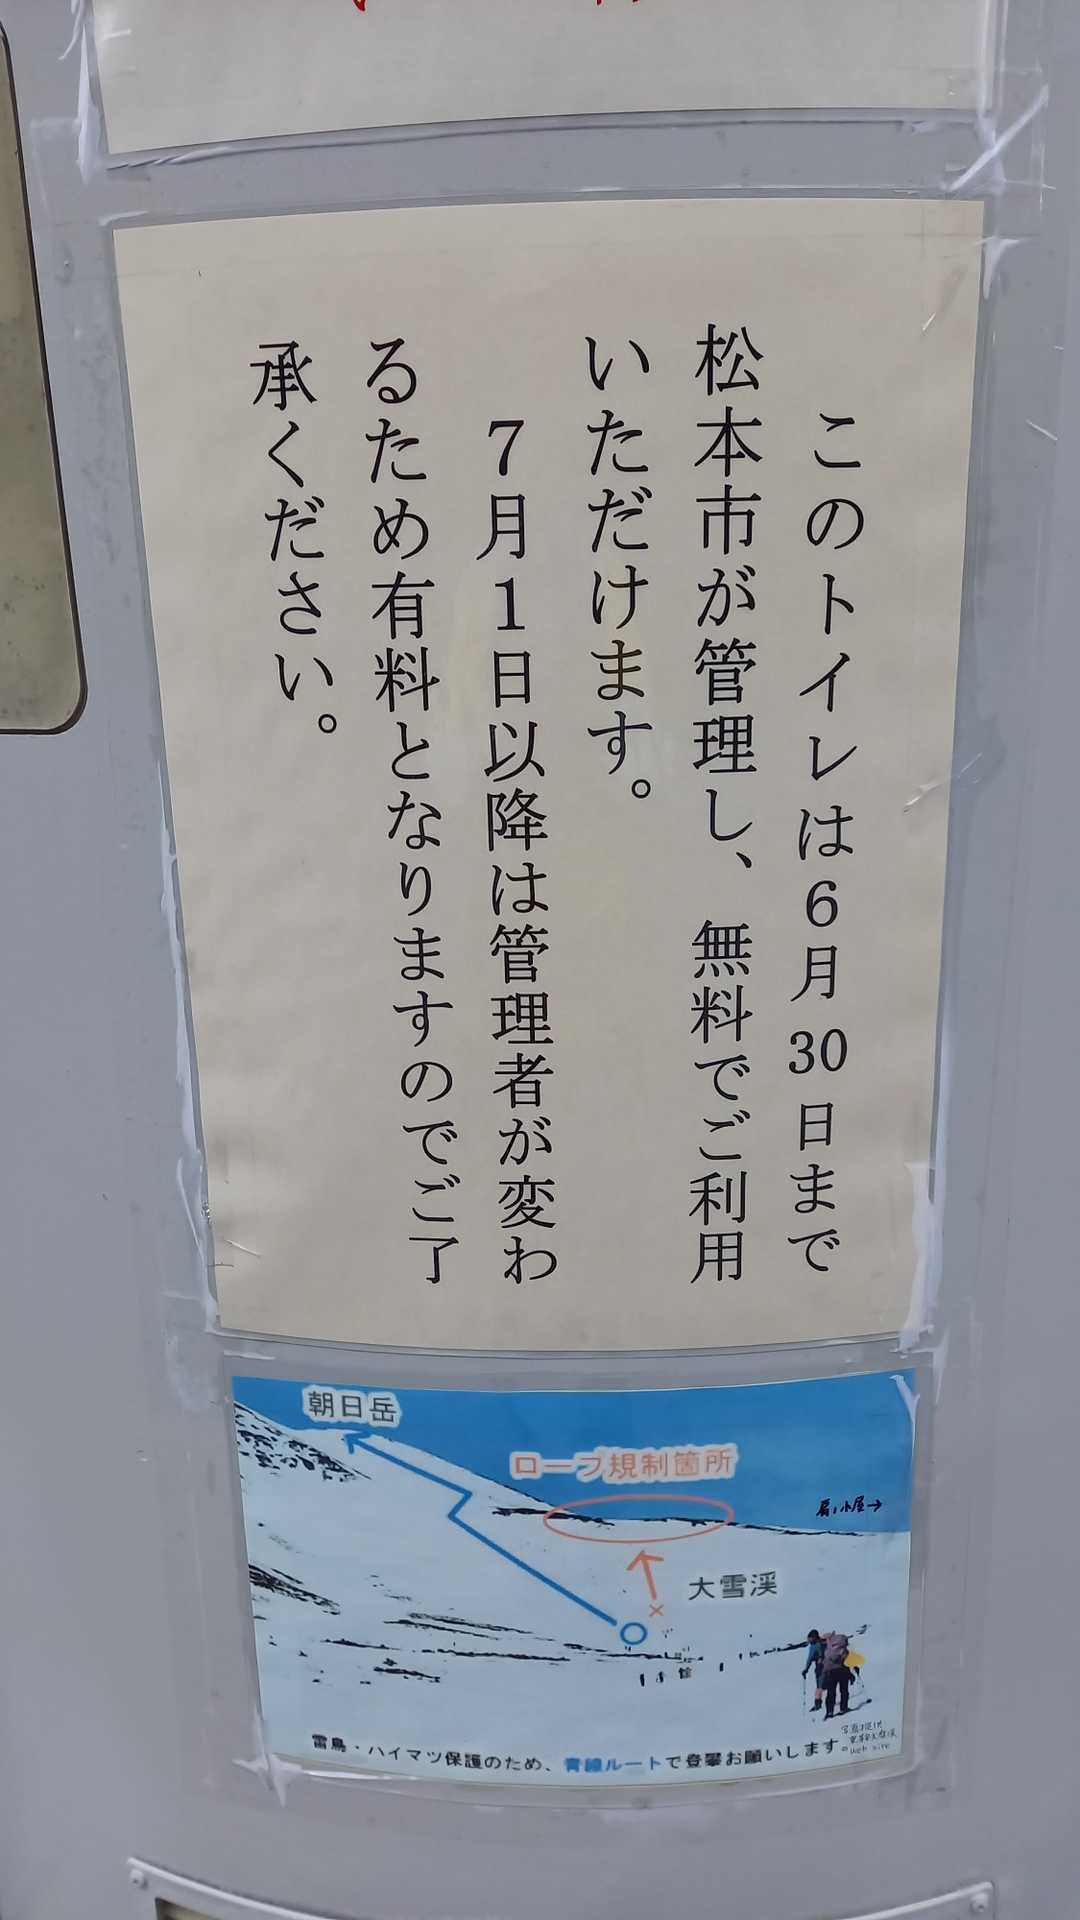 このトイレは6月30日まで
松本市が管理し、無料でご利用
いただけます。
7月1日以降は管理者が変わ
るため有料となりますのでご了
承ください。
朝日岳
ロープ規制箇所
肩ノ小屋→
大雪渓
雷鳥・ハイマツ保護のため、青線ルートで登攀お願いします。
写真提供
web site